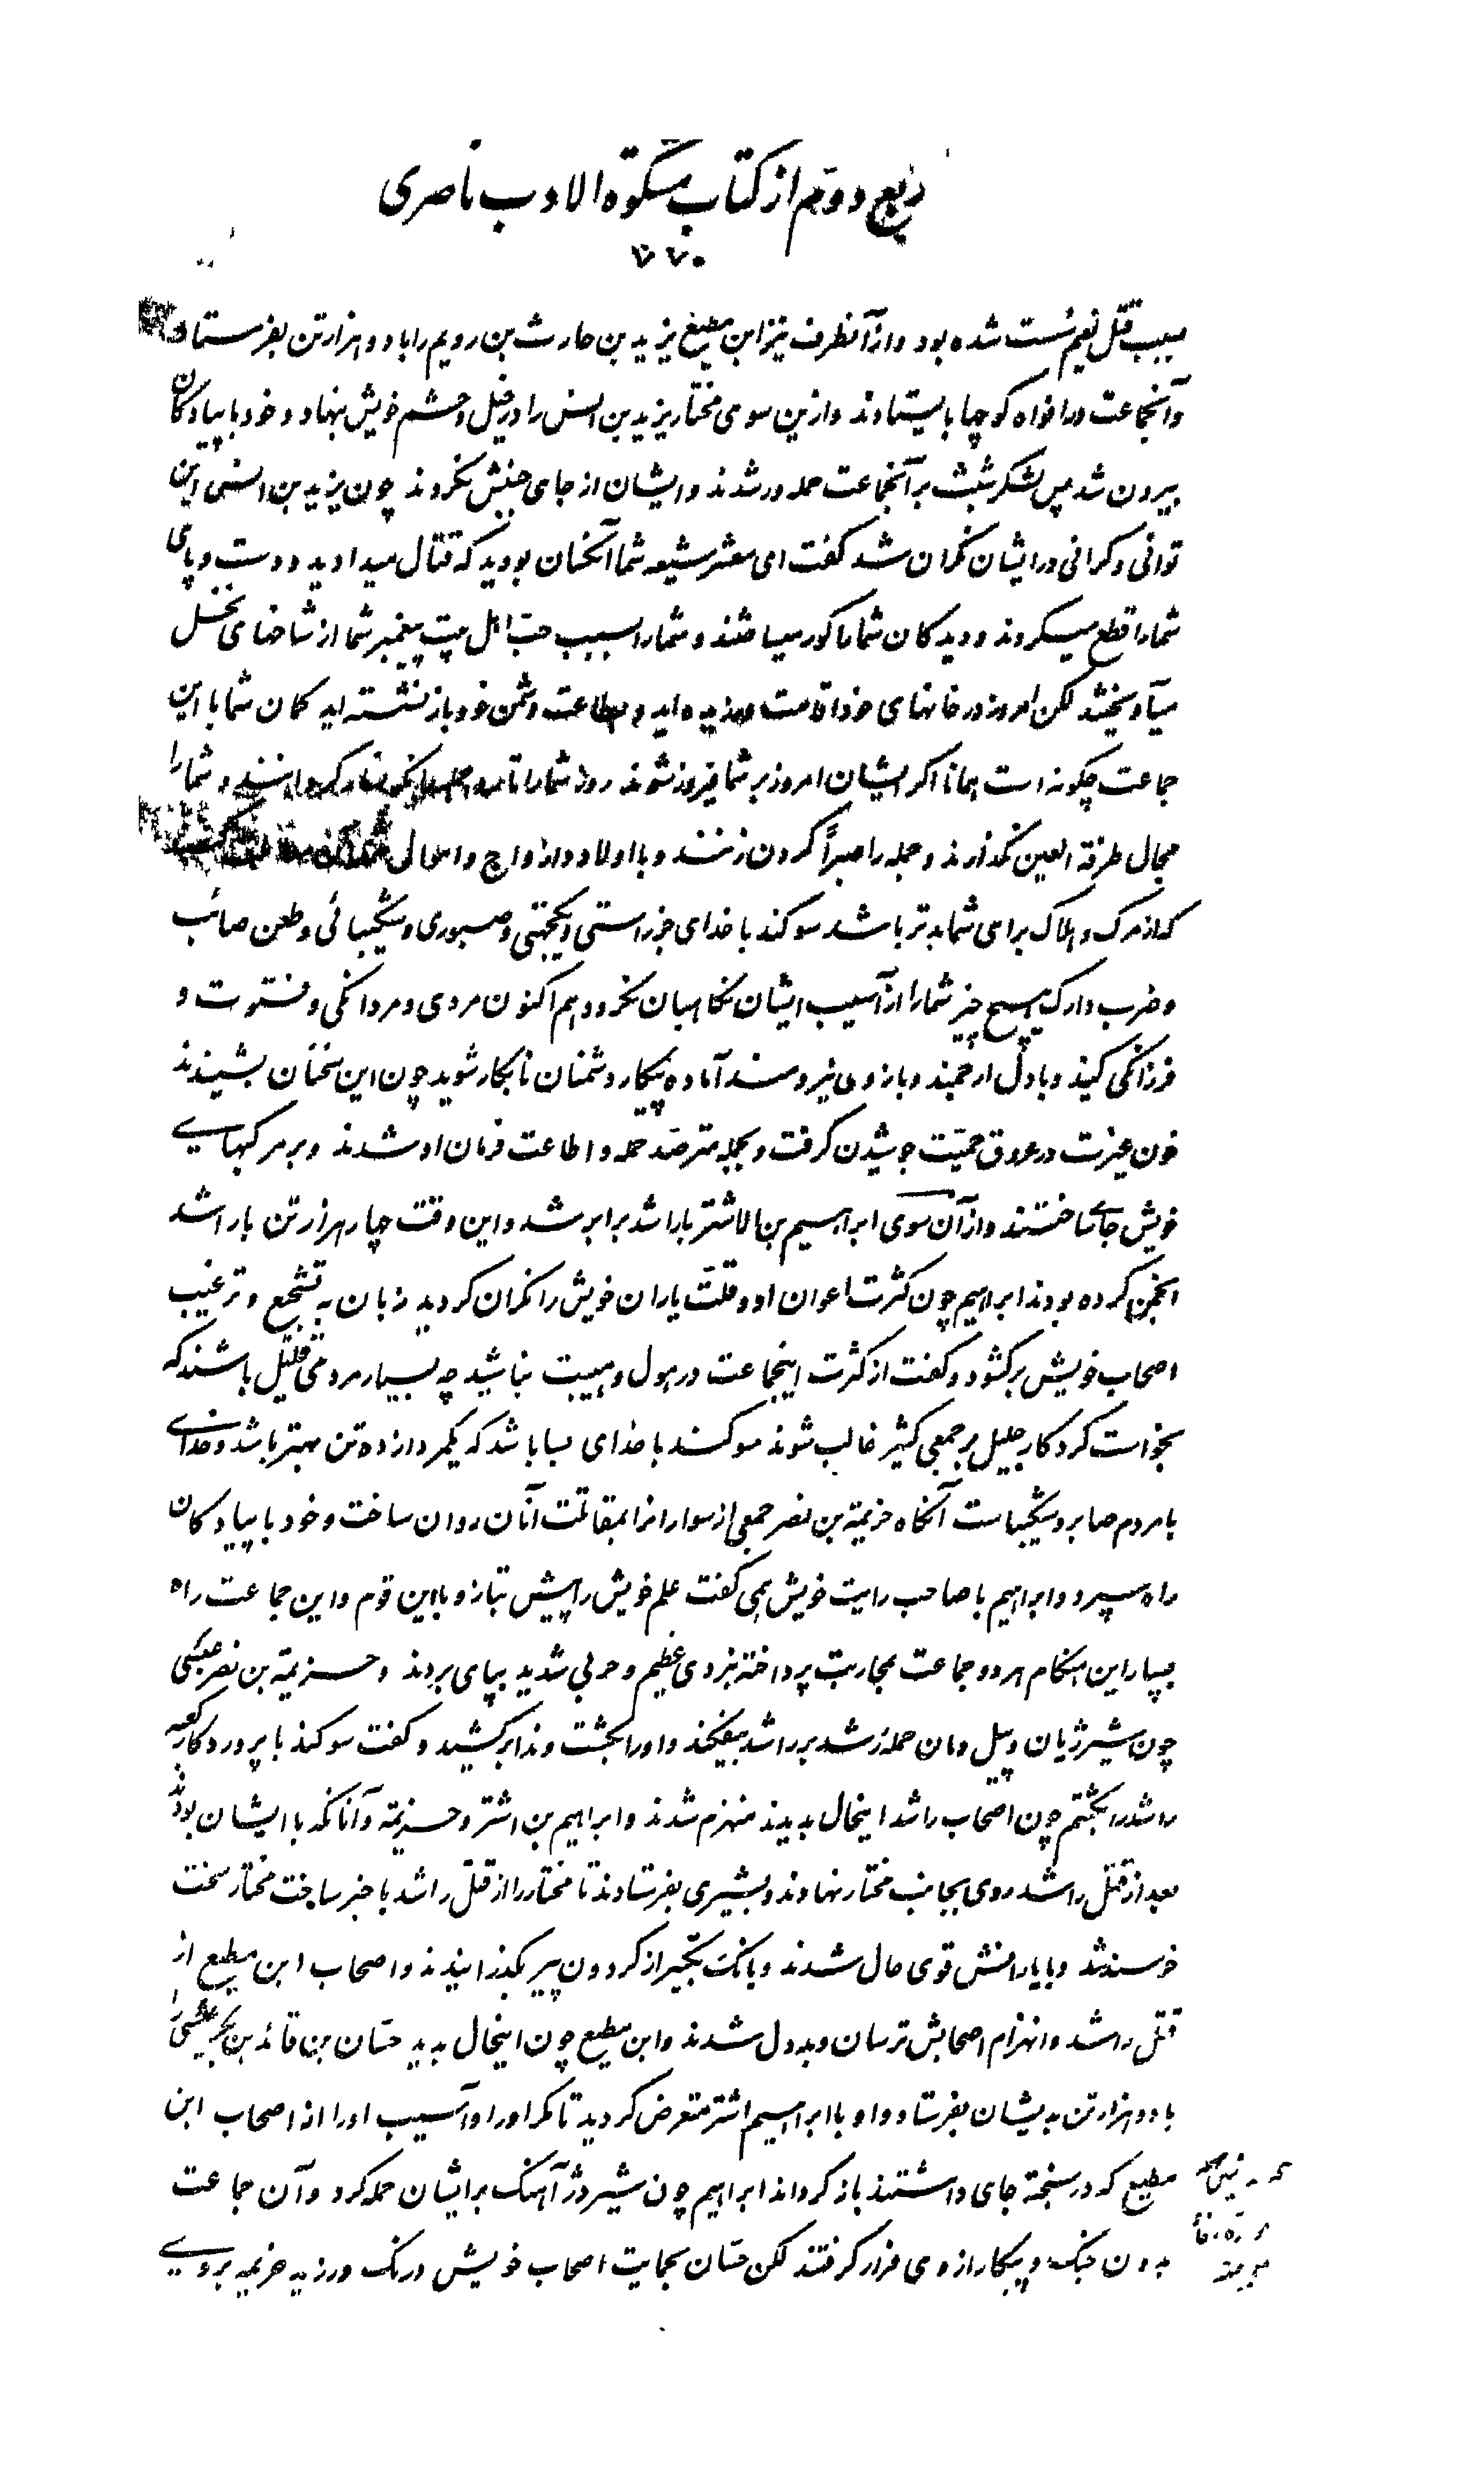 ربع دوم از کتاب مشکوة الادب ناصری
۷۷۰
بسبب قتل نعیم سست شده بود و از آنطرف نیز ابن مطیع یزید بن حارث بن رویم را با دو هزار تن بفرستاد
و آنجماعت در افواه کوچها بایستادند و ازین سوی مختار یزید بن انس را در خیل و حشم خویش بنهاد و خود با پیادکان
بیرون شد پس لشکر شبث بر آنجماعت حمله ور شدند و ایشان از جای جنبش نکردند چون یزید بن انس این
توانی و کرانی در ایشان نکران شد کفت ای معشر شیعه شما آنکسان بودید که قتال میدادید و دست و پای
شما را قطع میکردند و دیدکان شما را کور میساختند و شما را بسبب حب اهل بیت پیغمبر شما از شاخهای نخل
میآویختند لکن امروز در خانهای خود اقامت ورزیده اید و بطاعت دشمن خود باز نشسته اید کمان شما با این
جماعت چکونه است همانا اکر ایشان امروز بر شما فیروز شوند روز شما را تار و شما را
مجال طرفة العین نکذارند و جمله را صبراً کردن زنند و با اولاد و ازواج و اموال شما آن کنند
که از مرک و هلاک برای شما بدتر باشد سوکند با خدای جز راستی و یکجهتی و صبوری و شکیبائی و طعن صائب
و ضرب دارک هیچ چیز شما را از آسیب ایشان نکاهبان نکردد هم اکنون مردی و مردانکی و فتوت و
فرزانکی کنید و با دل ارجمند و بازوی نیرومند آماده پیکار دشمنان نابکار شوید چون این سخنان بشنیدند
خون غیرت در عروق حمیت جوشیدن کرفت و بجمله مترصد حمله و اطاعت فرمان او شدند و بر مرکبهای
خویش جای ساختند و از آن سوی ابراهیم بن الاشتر با راشد برابر شد و این وقت چهار هزار تن با راشد
انجمن کرده بودند ابراهیم چون کثرت اعوان او و قلت یاران خویش را نکران کردید زبان به تشجیع و ترغیب
اصحاب خویش برکشود و کفت از کثرت اینجماعت در هول و هیبت نباشید چه بسیار مردمی قلیل باشند که
بخواست کردکار جلیل بر جمعی کثیر غالب شوند سوکند با خدای بسا باشد که یکمرد از ده تن بهتر باشد و خدای
با مردم صابر و شکیباست آنکاه خزیمة بن نصر جمعی از سوارانرا بمقاتلت آنان روان ساخت و خود با پیادکان
راه سپرد و ابراهیم با صاحب رایت خویش همی کفت علم خویش را پیش بتاز و با این قوم و این جماعت راه
بسپار این هنکام هر دو جماعت بمحاربت پرداخته نبردی عظیم و حربی شدید بپای بردند و خزیمة بن نصر عبسی
چون شیر ژیان و پیل دمان حمله ور شد بر راشد بیفکند و او را بکشت و ندا برکشید و کفت سوکند با پروردکار کعبه
راشد را بکشتم چون اصحاب راشد اینحال بدیدند منهزم شدند و ابراهیم بن اشتر و خزیمة و آنانکه با ایشان بودند
بعد از قتل راشد روی بجانب مختار نهادند و بشیری بفرستادند تا مختار را از قتل راشد با خبر ساخت مختار سخت
خرسند شد و با یارانش قوی حال شدند و بانک تکبیر از کردون پیر بکذرانیدند و اصحاب ابن مطیع از
قتل راشد و انهزام اصحابش ترسان و بددل شدند و ابن مطیع چون اینحال بدید حسان بن قائد بن بکر عبسی را
با دو هزار تن بدیشان بفرستاد و او با ابراهیم اشتر متعرض کردید تا مکر او را و آسیب او را از اصحاب ابن
مطیع که در سبخة جای داشتند باز کرداند ابراهیم چون شیر دژ آهنک بر ایشان حمله کرد و آن جماعت
بدون جنک و پیکار از وی فرار کرفتند لکن حسان بحمایت اصحاب خویش درنک ورزید خزیمه بروی